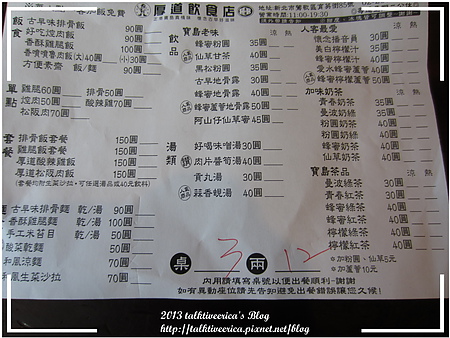 客加飯免費
厚道飲食店
營業時間11:00-19:30
飯食
古早味排骨飯 90圓
好吃焢肉飯 90圓
香酥雞腿飯 90圓
香噴噴魯肉飯(大)40圓(小)30圓
方便素齋 飯/麵 90圓
單點
雞腿60圓 排骨50圓
焢肉50圓 酸辣湯70圓
松阪肉70圓
套餐
排骨飯套餐 150圓
雞腿飯套餐 150圓
厚道酸辣雞飯 150圓
厚道松阪肉飯 150圓
(套餐均附生菜沙拉,可任選湯品或40元飲料)
古早味排骨麵 乾/湯 90圓
香酥雞腿麵 乾/湯 90圓
手工米苔目 乾/湯 50圓
酸菜乾麵 50圓
和風涼麵 50圓
和風生菜沙拉 70圓
飲品
寶島老味 涼 熱
蜂蜜粉圓 35圓
仙草甘茶 40圓
黑松粉圓 35圓
古早地骨露 40圓
蜂蜜地骨露 50圓
蜂蜜蘆薈地骨露 50圓
阿山仔仙草蜜 45圓
湯類
好喝味噌湯 30圓
肉片薈筍湯 40圓
貢丸湯 30圓
蒜香蜆湯 40圓
人客最愛 涼 熱
懷念播音員 30圓
美白檸檬汁 30圓
愛水蜂蜜蘆薈 50圓
蜂蜜檸檬汁 40圓
加味奶茶 涼 熱
青春奶茶 35圓
曼波奶綠 35圓
粉圓奶茶 40圓
粉圓奶綠 40圓
蜂蜜奶茶 40圓
仙草奶茶 40圓
寶島茶品 涼 熱
曼波綠茶 30圓
青春紅茶 30圓
蜂蜜綠茶 40圓
蜂蜜紅茶 40圓
檸檬綠茶 40圓
檸檬紅茶 40圓
*加粉圓、仙草5元
*加蘆薈10元
桌 3 兩 12
內用請填寫桌號以便出餐順利-謝謝
如有異動座位請先告知避免出餐錯誤讓您久候!
2013 talktiveerica's Blog
http://talktiveerica.pixnet.net/blog